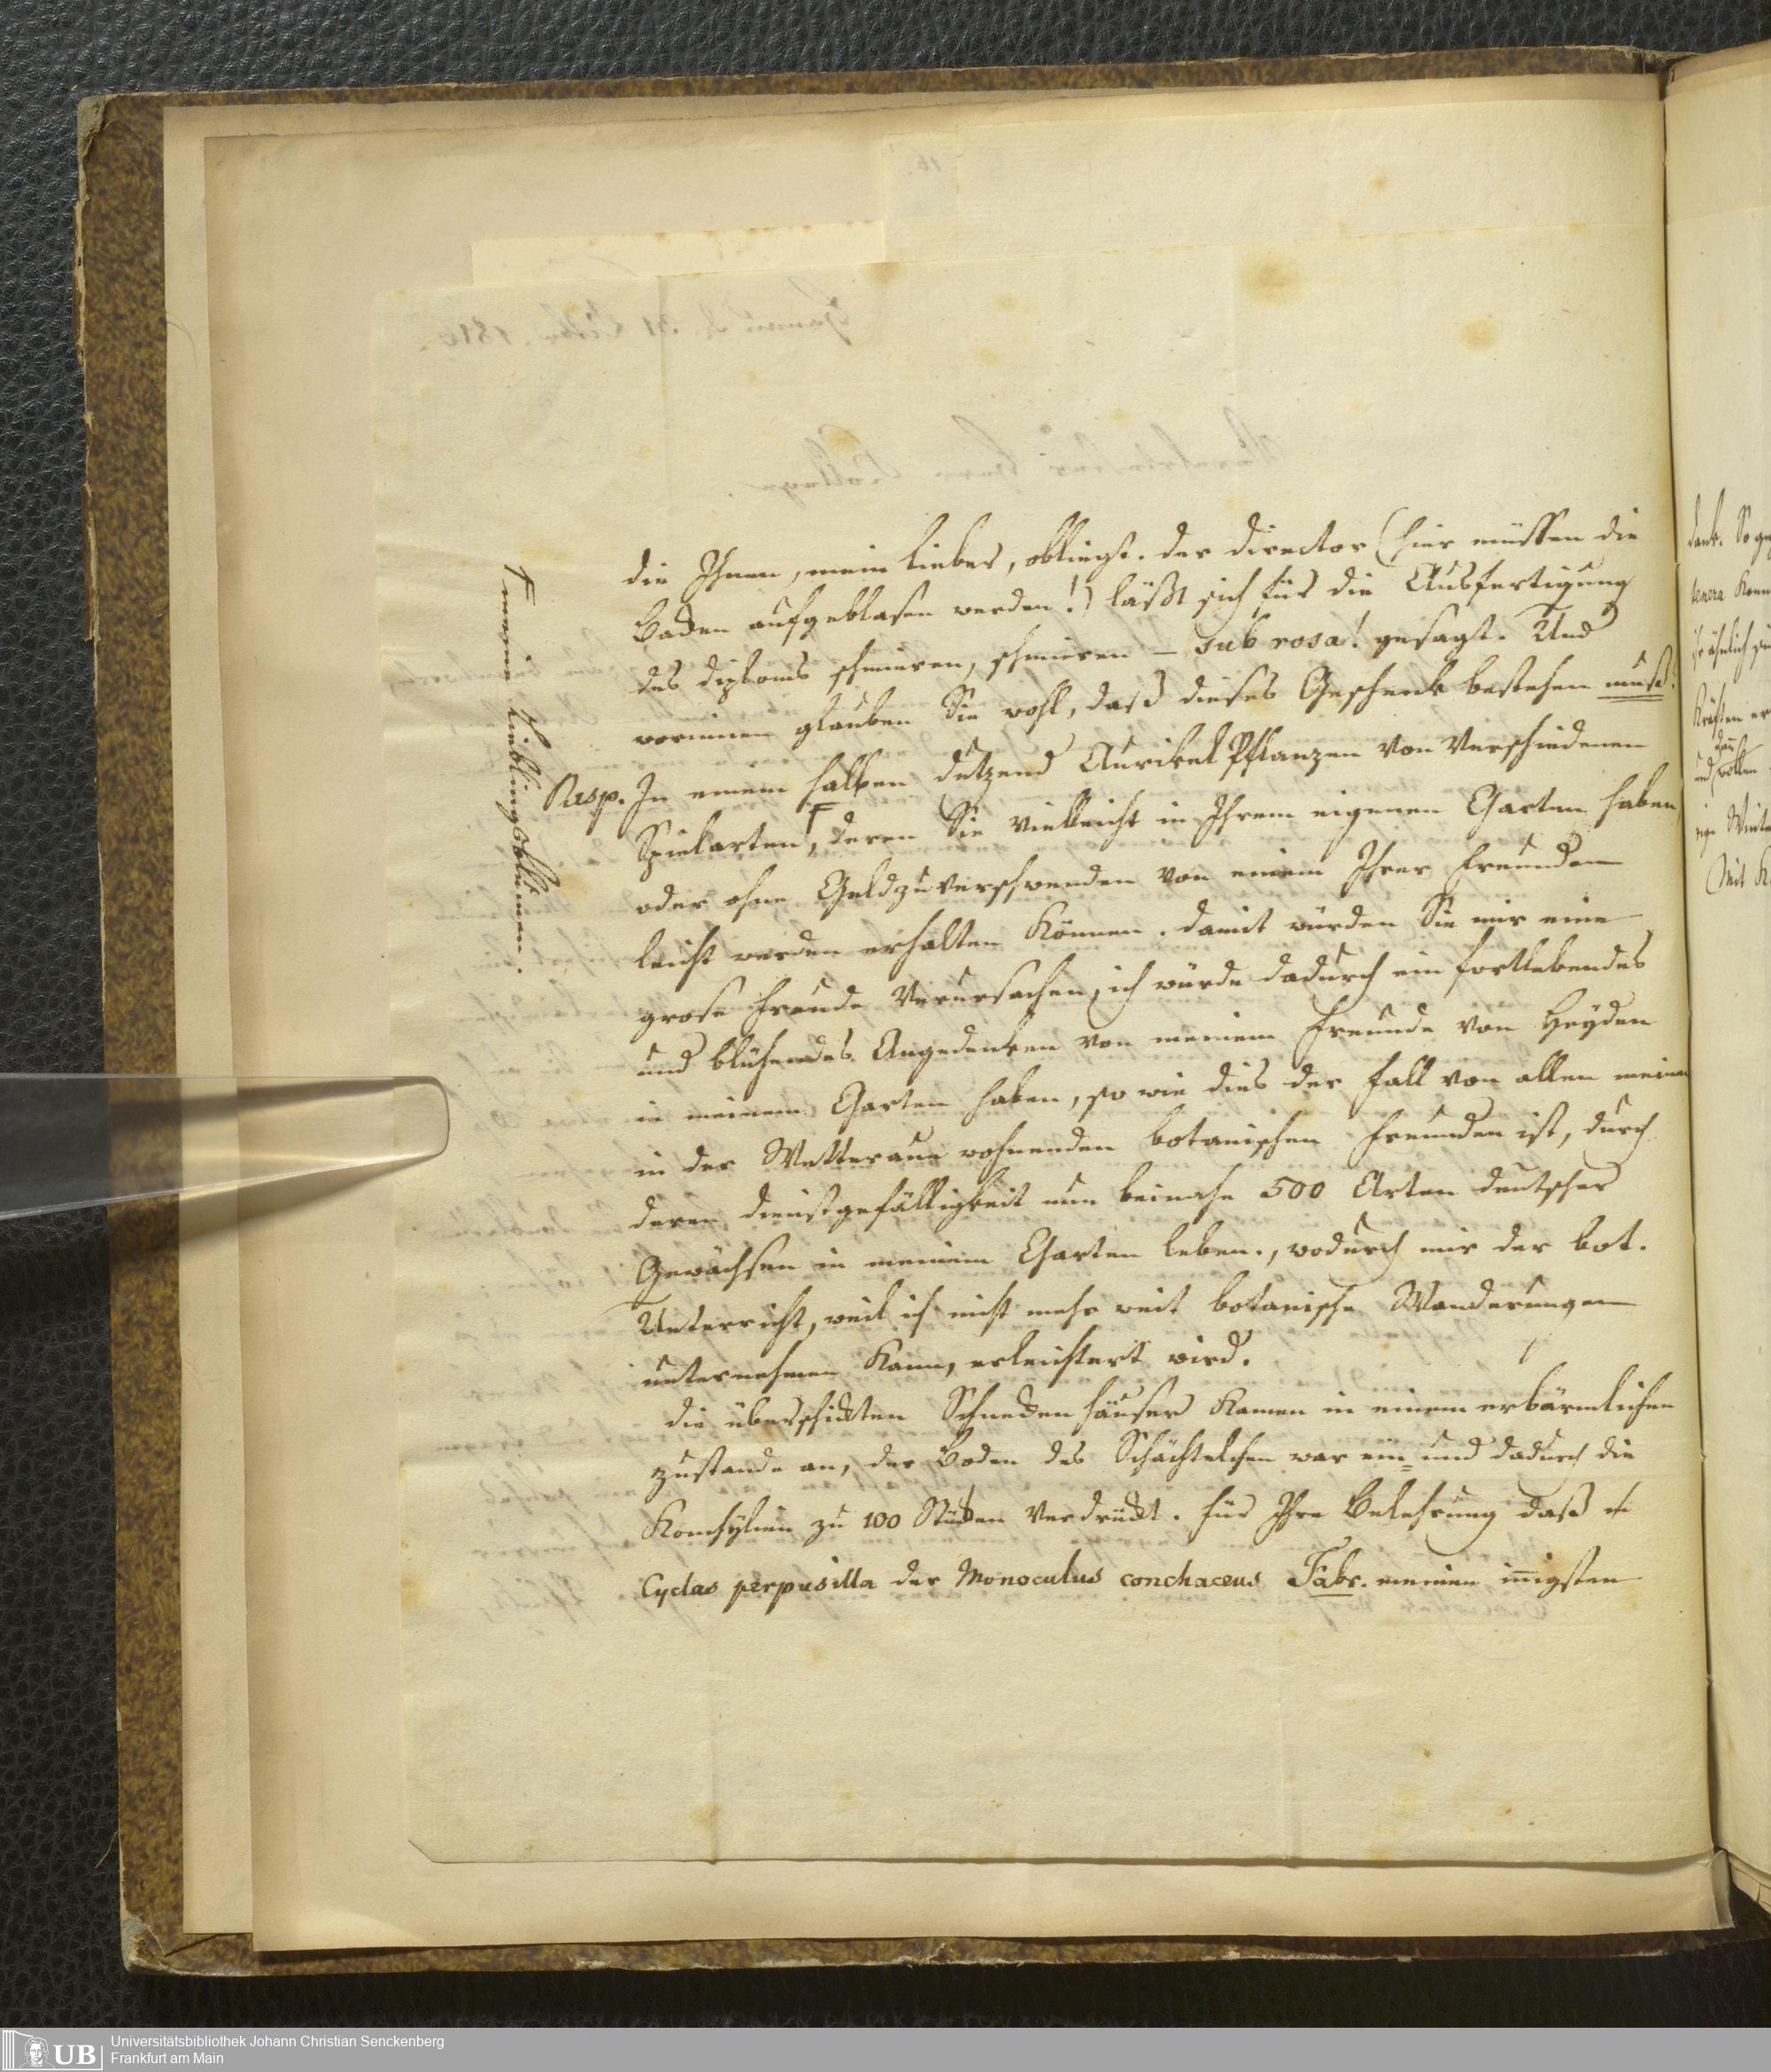 die Ihnen, mein Lieber, obliegt. Der Director (hier müssen die
Backen aufgeblasen werden!) läßt sich für die Ausfertigung
des Diploms schmieren, schmieren – sub rosa! gesagt. Und
worinnen glauben Sie wohl, daß dieses Geschenk bestehen muß?
Resp. In einem halben Dutzend Aurikel Pflanzen von verschiedenen
Spielarten, ⊤ deren Sie vielleicht in Ihrem eigenen Garten haben,
oder ohne Geld zu verschwenden von einem Ihrer Freunden
leicht werden erhalten können. Damit würden Sie mir eine
grose Freude verursachen, ich würde dadurch ein fortlebendes
und blühendes Angedenken von meinem Freunde von Heyden
in meinem Garten haben, so wie dies der Fall von allen meinen
in der Wetterau wohnenden botanischen Freunden ist, durch
deren Dienstgefälligkeit nun beinahe 500 Arten deutscher
Gewächsen in meinem Garten leben, wodurch mir der bot.
Unterricht, weil ich nicht mehr weit botanische Wanderungen
unternehmen kann, erleichtert wird.
Die überschickten Schneckenhäuser kamen in einem erbärmlichen
Zustande an, der Boden des Schächtelchen war ein= und dadurch die
Konchylien zu 100 Stücken verdrückt. Für Ihre Belehrung daß
Cyclas perpusilla der Monoculus conchaceus Fabr. meinen innigsten
⊤ meine Lieblingsblumen.
UB
Universitätsbibliothek Johann Christian Senckenberg
Frankfurt am Main